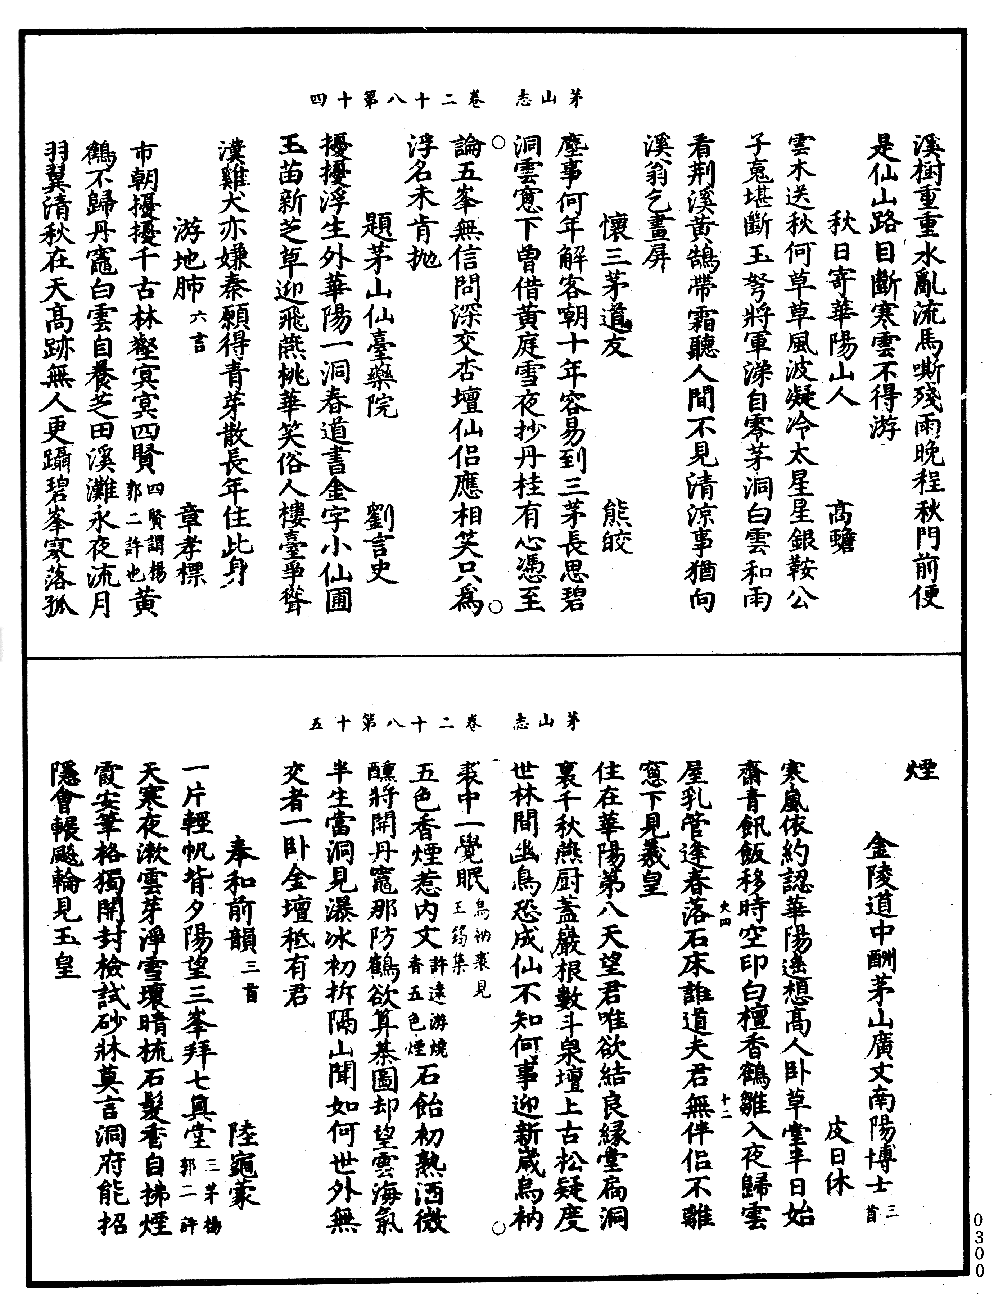 茅山志　卷二十八第十四
溪樹重重水亂流馬嘶殘雨晚程秋門前便
是仙山路目斷寒雲不得游
秋日寄華陽山人　高蟾
雲木送秋何草草風波凝冷太星星銀鞍公
子䰟堪斷玉弩將軍涕自零茅洞白雲和雨
看荆溪黄鵠帶霜聽人間不見清涼事猶向
溪翁乞畫屏
懷三茅道友　熊皎
塵事何年解客嘲十年容易到三茅長思碧
洞雲窻下曾借黄庭雪夜抄丹桂有心憑至
論五峯無信問深交杏壇仙侣應相笑只爲
浮名未肯抛
題茅山仙臺藥院　劉言史
擾擾浮生外華陽一洞春道書金字小仙圃
玉苗新芝草迎飛燕桃華笑俗人樓臺爭聳
漢雞犬亦嫌秦願得青芽散長年住此身
游地肺六言　章孝標
市朝擾擾千古林壑冥冥四賢四賢謂楊郭二許也黄
鶴不歸丹竈白雲自養芝田溪灘永夜流月
羽翼清秋在天高跡無人更躡碧峯寂落孤
茅山志　卷二十八第十五
煙
金陵道中酬茅山廣文南陽博士三首
皮日休
寒嵐依約認華陽遥想高人卧草堂半日始
齋青䭀飯移時空印白檀香鶴雛入夜歸雲
屋乳管逢春落石床誰道夫君無伴侣不離
窻下見羲皇
住在華陽第八天望君唯欲結良緣堂扃洞
裏千秋燕厨蓋巖根數斗泉壇上古松疑度
世林間幽鳥恐成仙不知何事迎新歲烏衲
裘中一覺眠烏衲裘見王筠集
五色香煙惹内文許遠游燒香五色煙石飴初熟酒微
醺將開丹竈那防鶴欲算棊圖却望雲海氣
半生當洞見瀑冰初拆隔山聞如何世外無
交者一卧金壇秪有君
奉和前韻三首　陸龜蒙
一片輕帆背夕陽望三峯拜七眞堂三茅楊郭二許
天寒夜漱雲芽淨雪壞晴梳石髮香自拂煙
霞安筆格獨開封檢試砂牀莫言洞府能招
隱會輾飈輪見玉皇
大四
十二
0300